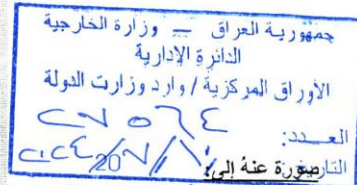 جمهورية العراق – وزارة الخارجية
الدائرة الإدارية
الأوراق المركزية / وارد وزارت الدولة
العـــدد: ٢٧٥٦٤
التاريخ:
صورة عنه إلى: